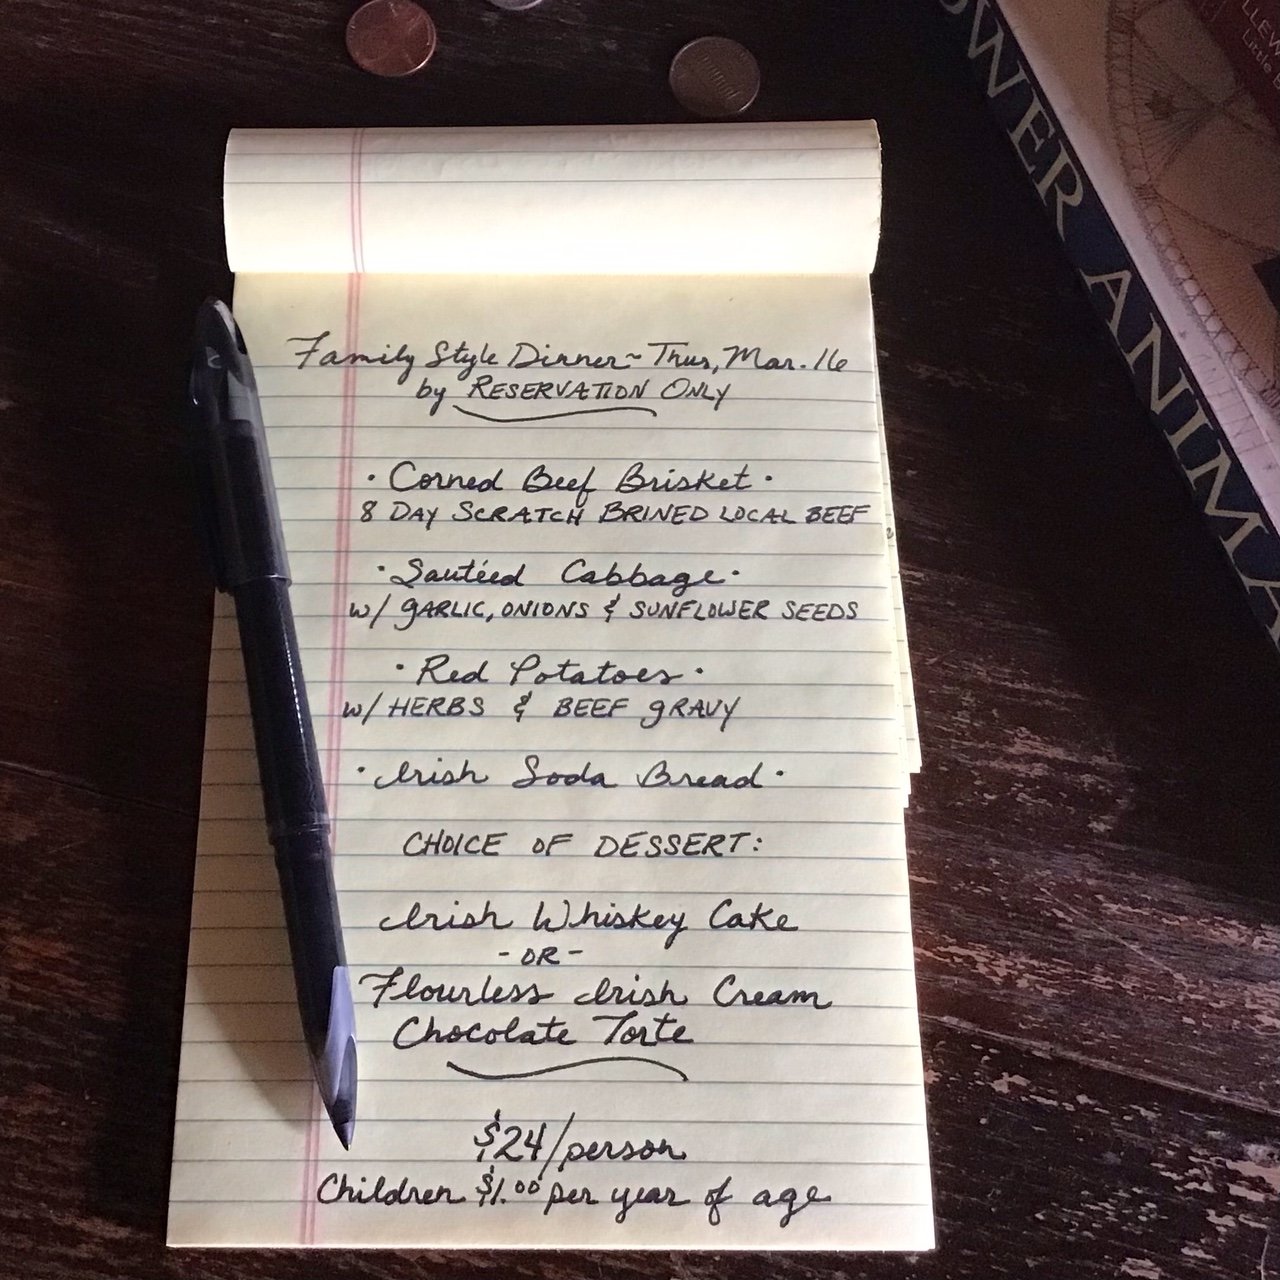 Family Style Dinner ~ Thur, Mar. 16
by RESERVATION ONLY
· Corned Beef Brisket ·
8 DAY SCRATCH BRINED LOCAL BEEF
· Sautéed Cabbage ·
w/ GARLIC, ONIONS & SUNFLOWER SEEDS
· Red Potatoes ·
w/ HERBS & BEEF GRAVY
· Irish Soda Bread ·
CHOICE OF DESSERT:
Irish Whiskey Cake
- OR -
Flourless Irish Cream
Chocolate Torte
$24/person
Children $1.00 per year of age
OWER ANIMA
LLEW
Little